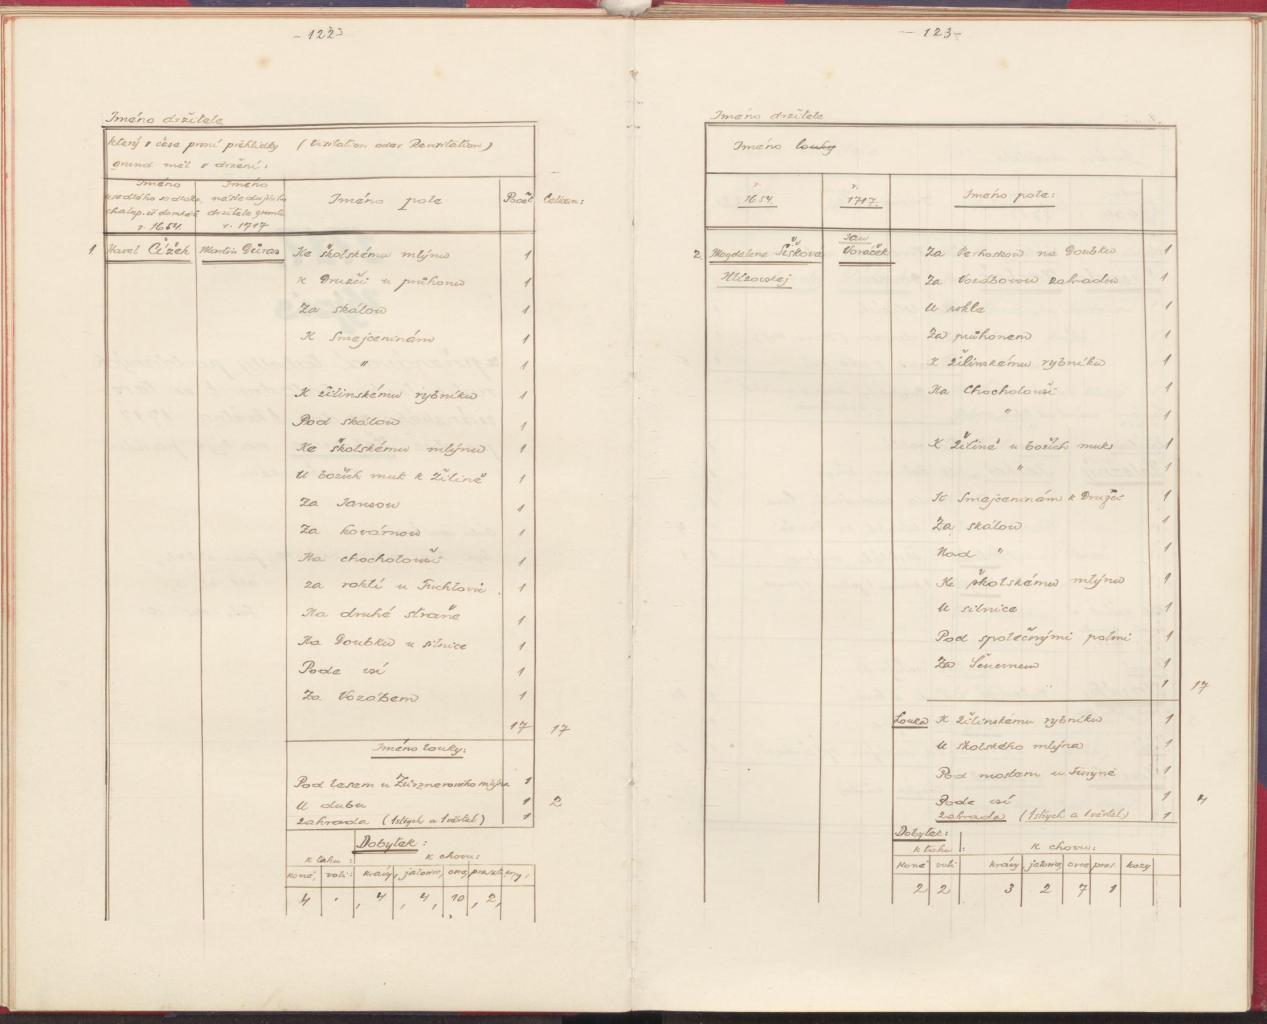 - 122 -
Jméno držitele
který v čase první prohlídky (Visitation oder Revisitation)
grund měl v držení:
Jméno
usedlého sedláka,
chalup. či domkáře
r. 1654
Jméno
následujícího
držitele gruntu
r. 1717
Jméno pole
Počet
Celkem:
1. Havel Čížek
Martin Důras
Ke školskému mlýnu 1
K Družci u průhonu 1
Za skálou 1
K Smejceninám 1
" 1
K žilinskému rybníku 1
Pod skálou 1
Ke školskému mlýnu 1
U božích muk k Žilině 1
Za Jansou 1
Za kovárnou 1
Na chocholouši 1
Za roklí u Fuchlovic 1
Na druhé straně 1
Na Doubku u silnice 1
Pode vsí 1
Za Vozábem 1
17 17
Jméno louky:
Pod lesem u mlýna 1
U dubu 1 2
Zahrada (1 strych a 1 věrtel) 1
Dobytek:
k tahu: k chovu:
koně, voli: krávy, jalovic, ovce, prasat, kozy,
4 . , 4 , 4, 10 , 2,
- 123 -
Jméno držitele
Jméno louky
r. 1654.
r. 1717.
Jméno pole:
2. Magdalena Šišková
Hlízovskej
Jan
Voráček
Za Perkoskou na Doubku 1
Za Vozábovou zahradou 1
U rokle 1
Za průhonem 1
K žilinskému rybníku 1
Na Chocholouši 1
" 1
K Žilině u božích muk 1
" 1
K Smejceninám k Družci 1
Za skálou 1
Nad " 1
Ke školskému mlýnu 1
U silnice 1
Pod společnými polmi 1
Za 1
" 1 17
Louka K žilinskému rybníku 1
U školského mlýna 1
Pod mostem u 1
Pode vsí 1 4
Zahrada (1 strych a 1 věrtel) 1
Dobytek:
k tahu: k chovu:
koně voli krávy jalovic, ovce pras. kozy
2 2 3 2 7 1